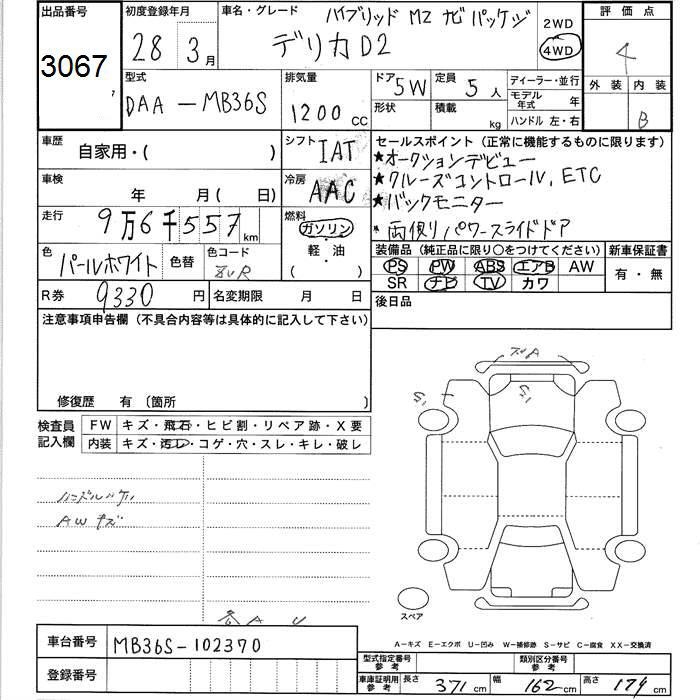 出品番号
3067
初度登録年月
28年3月
車名・グレード
ハイブリッド MZ ナビパッケージ
デリカD2
2WD
4WD
評価点
4
外装 内装
B
型式
DAA-MB36S
排気量
1200 cc
ドア 5W
形状
定員 5 人
積載 kg
ディーラー・並行
モデル年式 年
ハンドル 左・右
車歴
自家用・( )
シフト IAT
車検
年 月( 日)
冷房 AAC
走行
9万6千557km
燃料
ガソリン
軽・油
( )
色
パールホワイト
色替
色コード
ZVR
R券 9330 円
名変期限 月 日
セールスポイント(正常に機能するものに限ります)
★オークションデビュー
★クルーズコントロール, ETC
★バックモニター
* 両側パワースライドドア
装備品(純正品に限り○をつけてください)
PS PW ABS エアB AW
SR ナビ TV カワ
新車保証書
有・無
後日品
注意事項申告欄(不具合内容等は具体的に記入して下さい)
修復歴 有(箇所 )
検査員記入欄
FW キズ・飛石・ヒビ割・リペア跡・X要
内装 キズ・汚レ・コゲ・穴・スレ・キレ・破レ
ハンドルハゲ
AWキズ
各 A U
S1
S1
スペア
A−キズ E−エクボ U−凹み W−補修跡 S−サビ C−腐食 XX−交換済
車台番号
MB36S-102370
登録番号
型式指定番号参考
類別区分番号参考
車庫証明用参考
長さ 371 cm
幅 162 cm
高さ 174 cm